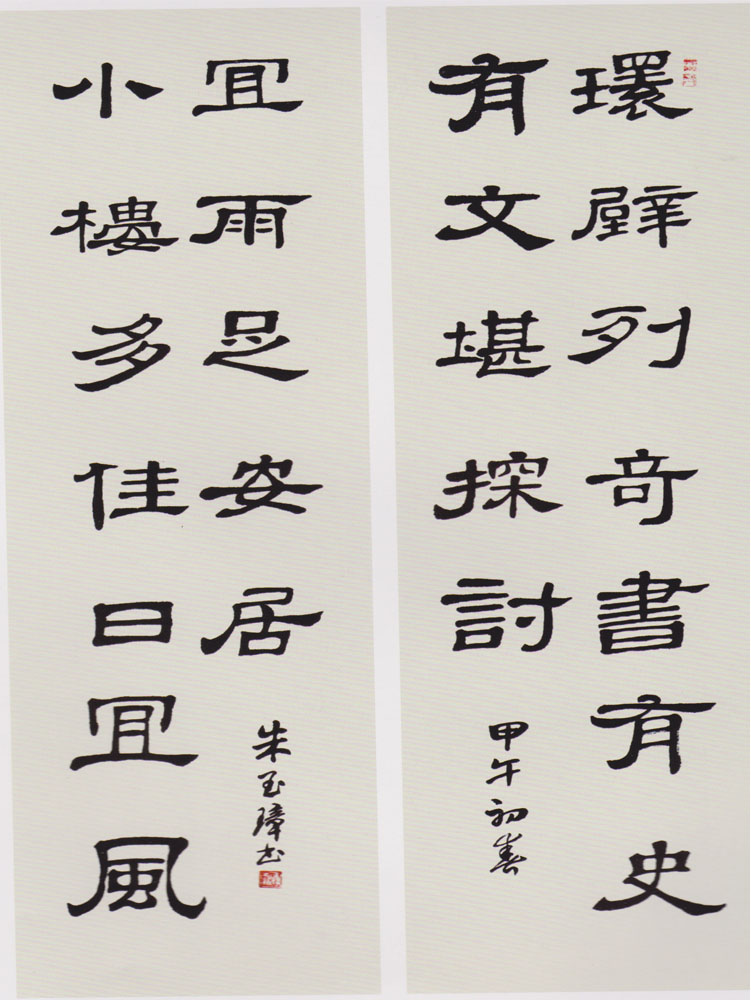 環壁列奇書有史
有文堪探討
甲午初春
小樓多佳日宜風
宜雨足安居
朱玉璋书